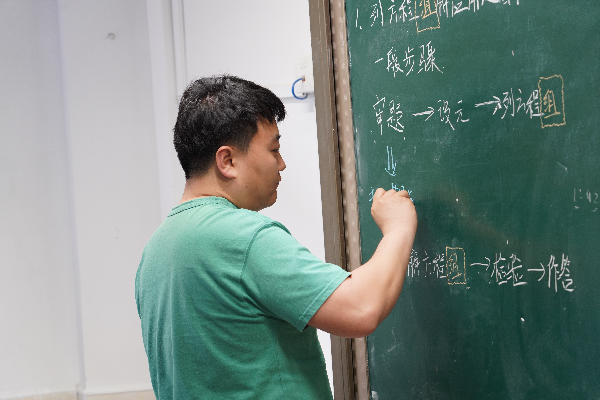 1. 列方程组解应用题
一般步骤
审题→设元→列方程组
⇓
解方程组→检验→作答